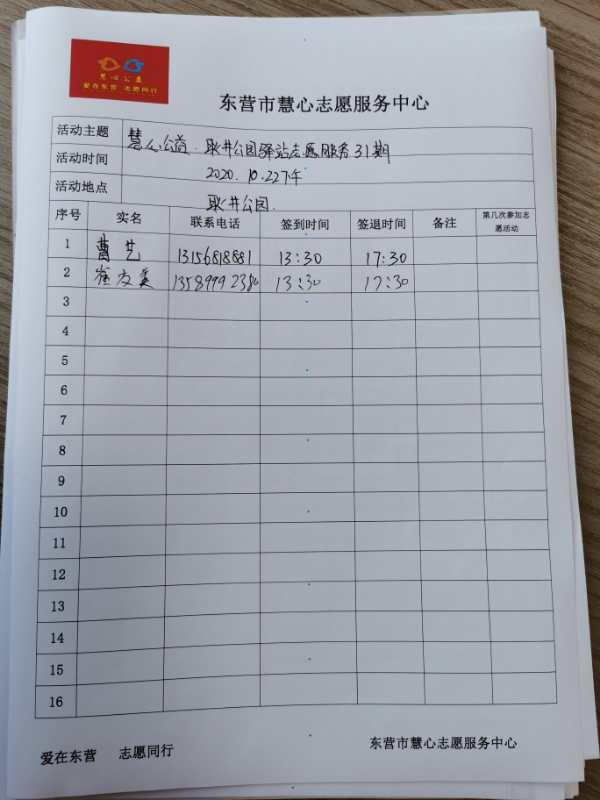 慧心公益
爱在东营 志愿同行
东营市慧心志愿服务中心
活动主题 慧心公益·耿井公园驿站志愿服务31期
活动时间 2020.10.22下午
活动地点 耿井公园
序号 实名 联系电话 签到时间 签退时间 备注 第几次参加志愿活动
1 曹艺 13156818881 13:30 17:30
2 崔友美 1358999 13:30 17:30
3
4
5
6
7
8
9
10
11
12
13
14
15
16
爱在东营 志愿同行 东营市慧心志愿服务中心